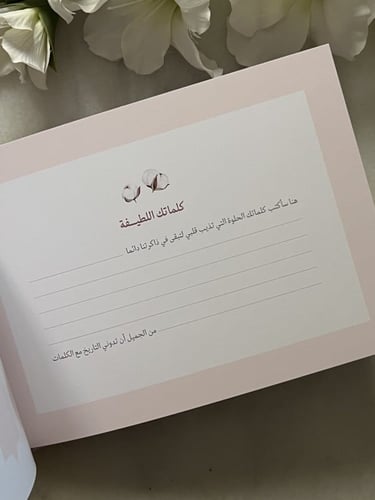 كلماتك اللطيفة
هنا سأكتب كلماتك الحلوة التي تذيب قلبي لتبقى في ذاكرتنا دائما
من الجميل أن تدوني التاريخ مع الكلمات